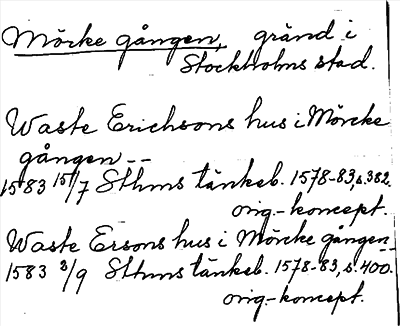 Mörke gången, gränd i
Stockholms stad.
Waste Erichsons hus i Mörcke
gången --
1583 15/7 Sthms tänkeb. 1578-83, s. 382.
orig.-koncept.
Waste Ersons hus i Mörcke gången --
1583 3/9 Sthms tänkeb. 1578-83, s. 400.
orig.-koncept.